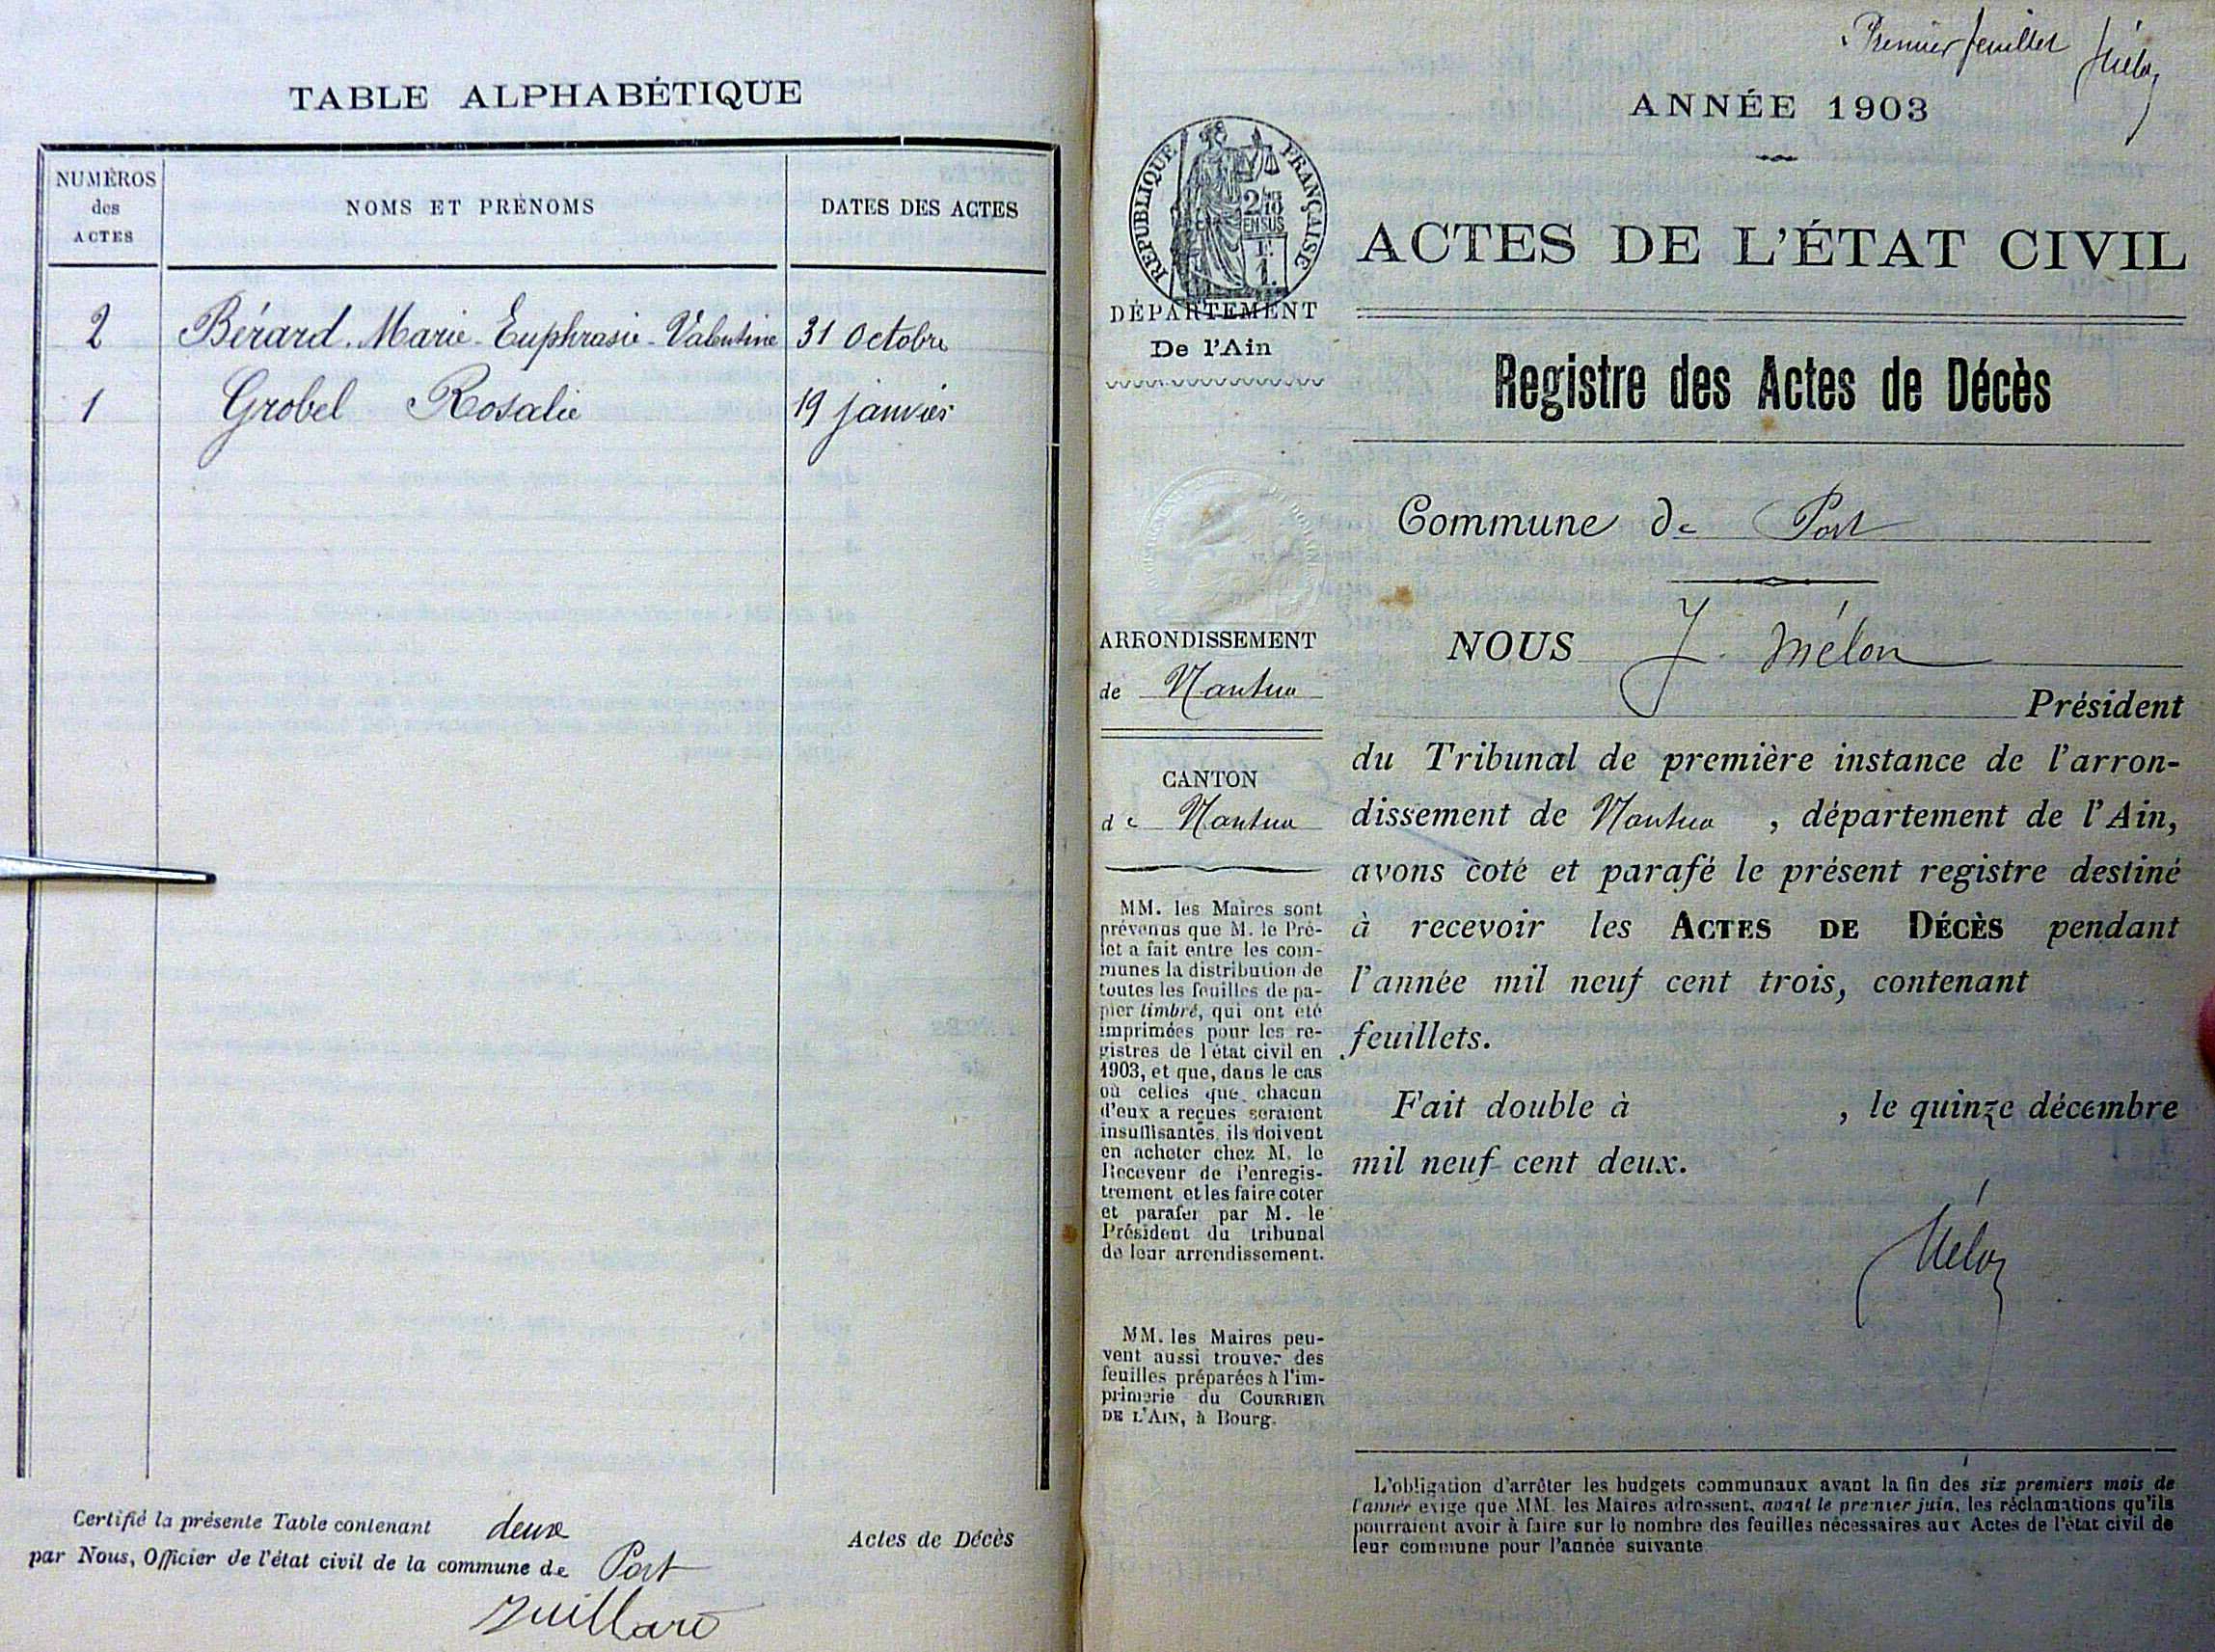 TABLE ALPHABÉTIQUE
NUMÉROS
des
ACTES
NOMS ET PRÉNOMS
DATES DES ACTES
2 Bérard. Marie-Euphrasie-Valentine 31 Octobre
1 Grobel Rosalie 19 janvier
Certifié la présente Table contenant deux Actes de Décès
par Nous, Officier de l'état civil de la commune de Port
Juillard
Premier feuillet Mélon
ANNÉE 1903
RÉPUBLIQUE FRANÇAISE
DÉPARTEMENT
De l'Ain
ACTES DE L'ÉTAT CIVIL
Registre des Actes de Décès
Commune de Port
ARRONDISSEMENT
de Nantua
CANTON
de Nantua
MM. les Maires sont
prévenus que M. le Pré-
fet a fait entre les com-
munes la distribution de
toutes les feuilles de pa-
pier timbré, qui ont été
imprimées pour les re-
gistres de l'état civil en
1903, et que, dans le cas
où celles que chacun
d'eux a reçues seraient
insuffisantes, ils doivent
en acheter chez M. le
Receveur de l'enregis-
trement et les faire coter
et parafer par M. le
Président du tribunal
de leur arrondissement.
MM. les Maires peu-
vent aussi trouver des
feuilles préparées à l'im-
primerie du COURRIER
DE L'AIN, à Bourg.
NOUS J. Mélon
Président
du Tribunal de première instance de l'arron-
dissement de Nantua , département de l'Ain,
avons coté et parafé le présent registre destiné
à recevoir les ACTES DE DÉCÈS pendant
l'année mil neuf cent trois, contenant
feuillets.
Fait double à , le quinze décembre
mil neuf cent deux.
Mélon
L'obligation d'arrêter les budgets communaux avant la fin des six premiers mois de
l'année exige que MM. les Maires adressent, avant le premier juin, les réclamations qu'ils
pourraient avoir à faire sur le nombre des feuilles nécessaires aux Actes de l'état civil de
leur commune pour l'année suivante